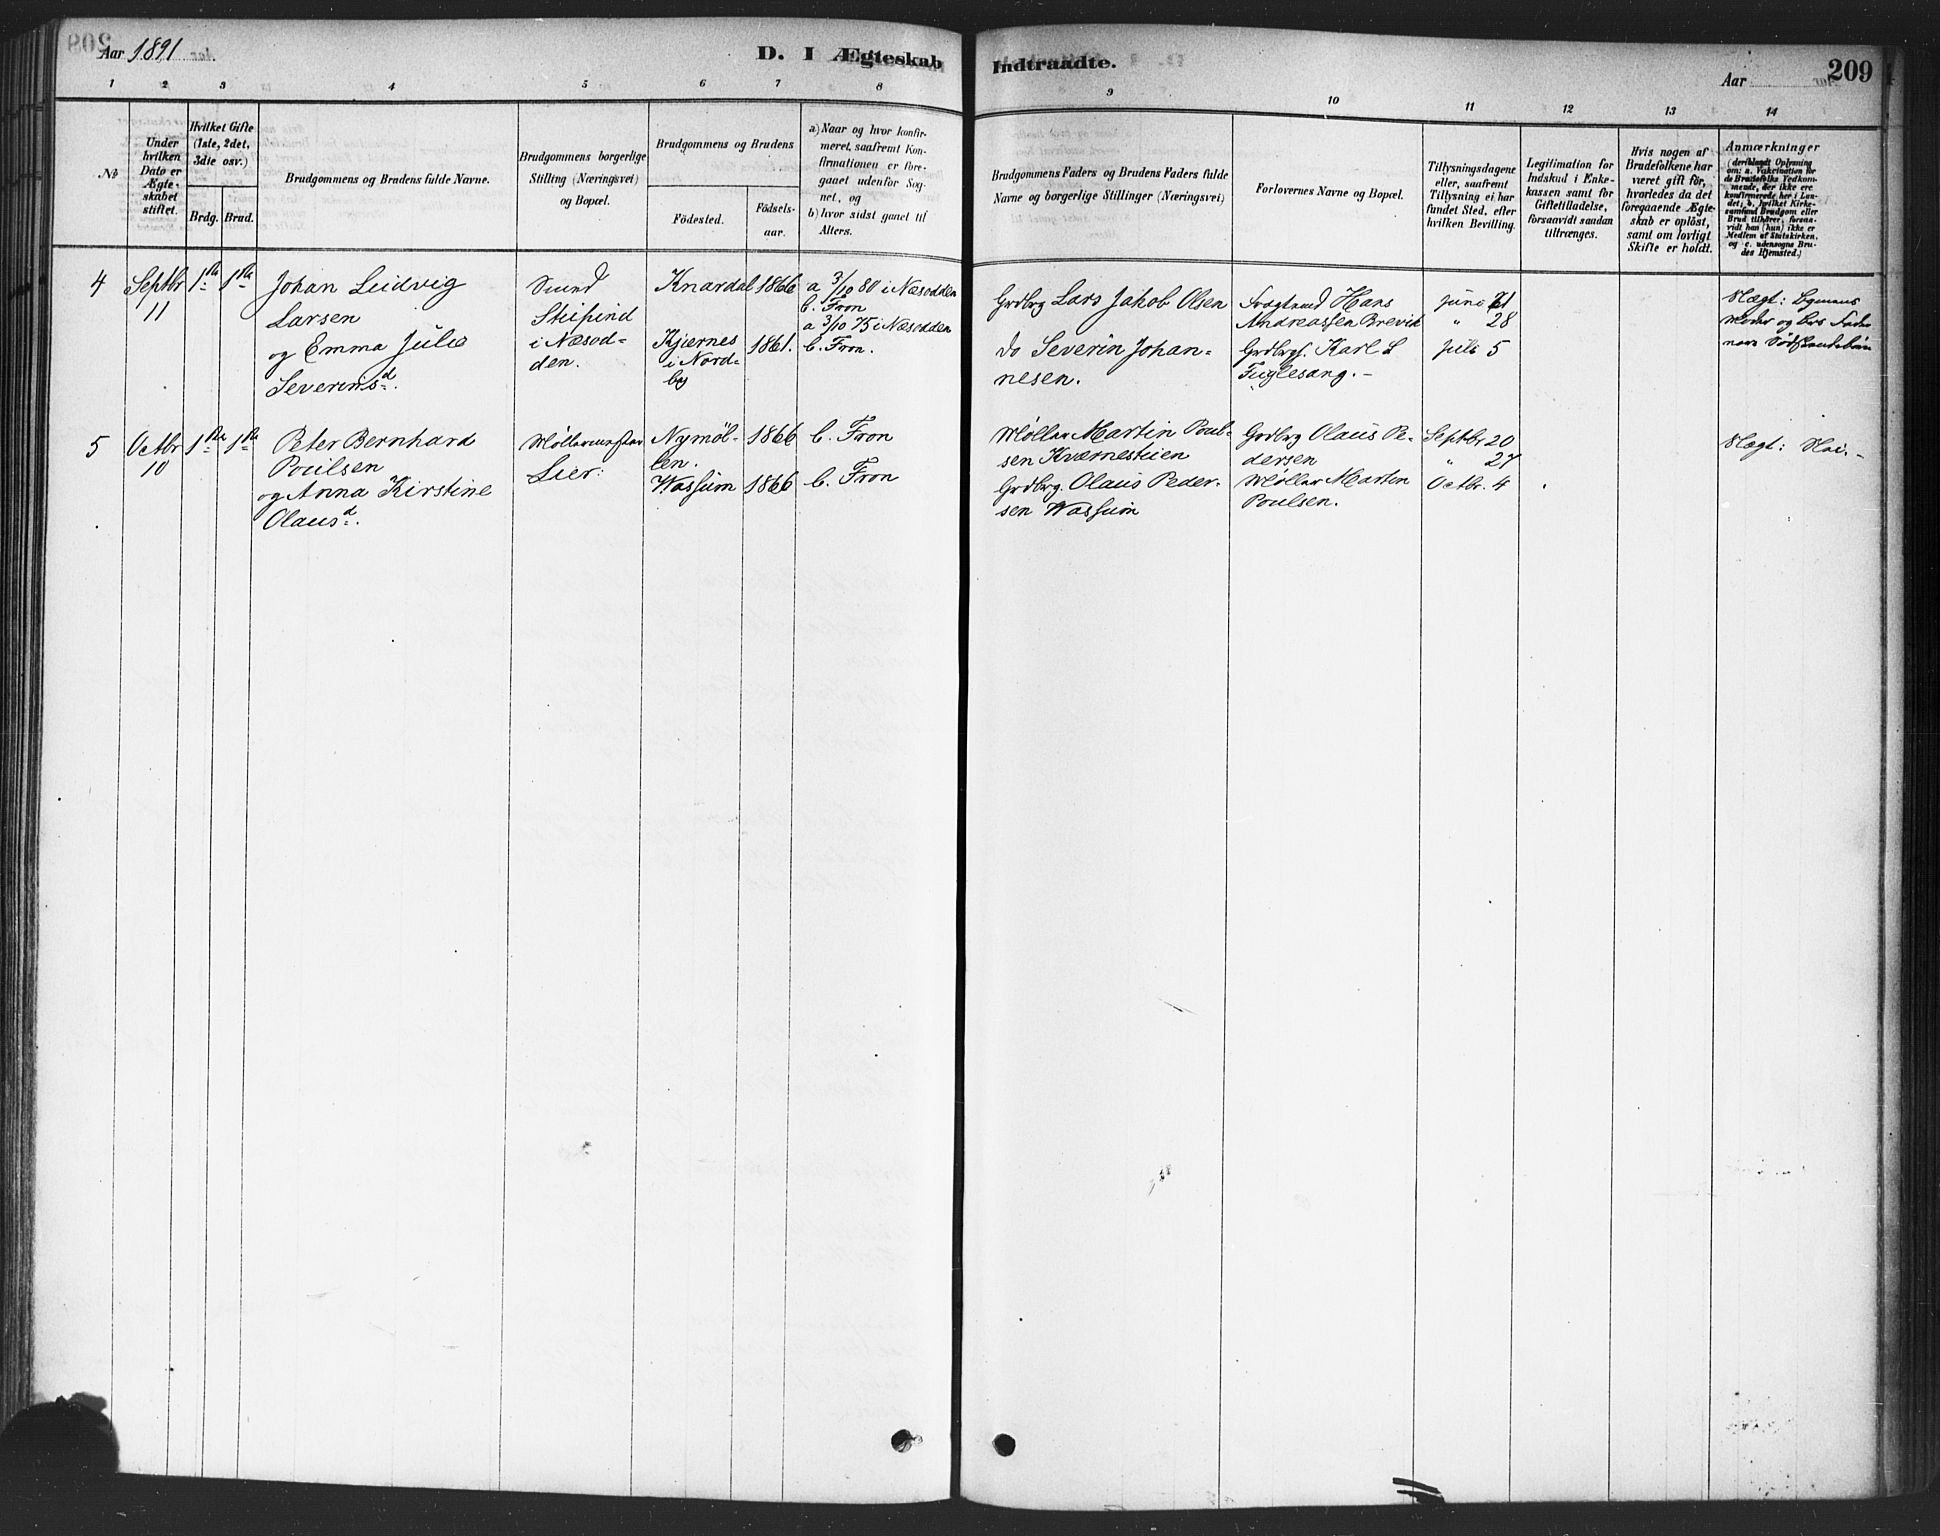 Aar 1891
D. I Ægteskab
Indtraadte.
Aar
209
1 2 3 4 5 6 7 8 9 10 11 12 13 14
№
Under
hvilken
Dato er
Ægte-
skabet
stiftet.
Hvilket Gifte
(1ste, 2det,
3die osv.)
Brdg. Brud.
Brudgommens og Brudens fulde Navne.
Brudgommens borgerlige
Stilling (Næringsvei)
og Bopæl.
Brudgommens og Brudens
Födested.
Födsels-
aar.
a) Naar og hvor konfir-
meret, saafremt Kon-
firmationen er fore-
gaaet udenfor Sog-
net, og
b) hvor sidst ganet til
Alters.
Brudgommens Faders og Brudens Faders fulde
Navne og borgerlige Stillinger (Næringsvei)
Forlovernes Navne og Bopæl.
Tillysningsdagene
eller, saafremt
Tillysning ei har
fundet Sted, efter
hvilken Bevilling.
Legitimation for
Indskud i Enke-
kassen samt for
Giftetilladelse,
forsaavidt saadan
tiltrænges.
Hvis nogen af
Brudefolkene har
været gift för,
hvorledes da det
foregaaende Ægte-
skab er oplöst,
samt om lovligt
Skifte er holdt.
Anmærkninger
(deriblandt Oplysning
om: a. Vakcination for
de Brudefolks Vedkom-
mende, der ikke ere
konfirmerede her i Lan-
det; b. hvilket Kirke-
samfund Brudgom eller
Brud tilhører, forsaa-
vidt han (hun) ikke er
Medlem af Statskirken,
og c. udensogns Bru-
des Hjemsted.)
4
Septbr
11
1ste
1ste
Johan Ludvig
Larsen
og Emma Julie
Severinsd.
Smed
Stubind
i Næsod-
den.
Knardal 1866
Kjærnes
i Nord-
by
1861.
a 3/10 80 i Næsodden
b. Fron
a 3/10 75 i Næsodden
b. Fron.
Grdbrg Lars Jakob Olsen
do Severin Johan-
nesen.
Hans
Andreassen Brevik
Karl L
Fuglesang. -
Juni 21
" 28
Juli 5
Slægt:
Moder og
5
Octbr
10
1ste
1ste
Peter Bernhard
Poulsen
og Anna Kirstine
Olausd.
Lier.
Nymöl-
len.
1866
Wassum 1866
b. Fron
b. Fron
Møller Martin Poul-
sen Kværnestuen
Grdbrg. Olaus Peder-
sen Wassum
Grdbrg Olaus Pe-
dersen
Møller Martin
Poulsen.
Septbr 20
" 27
Octbr. 4
Slægt: Nei. -